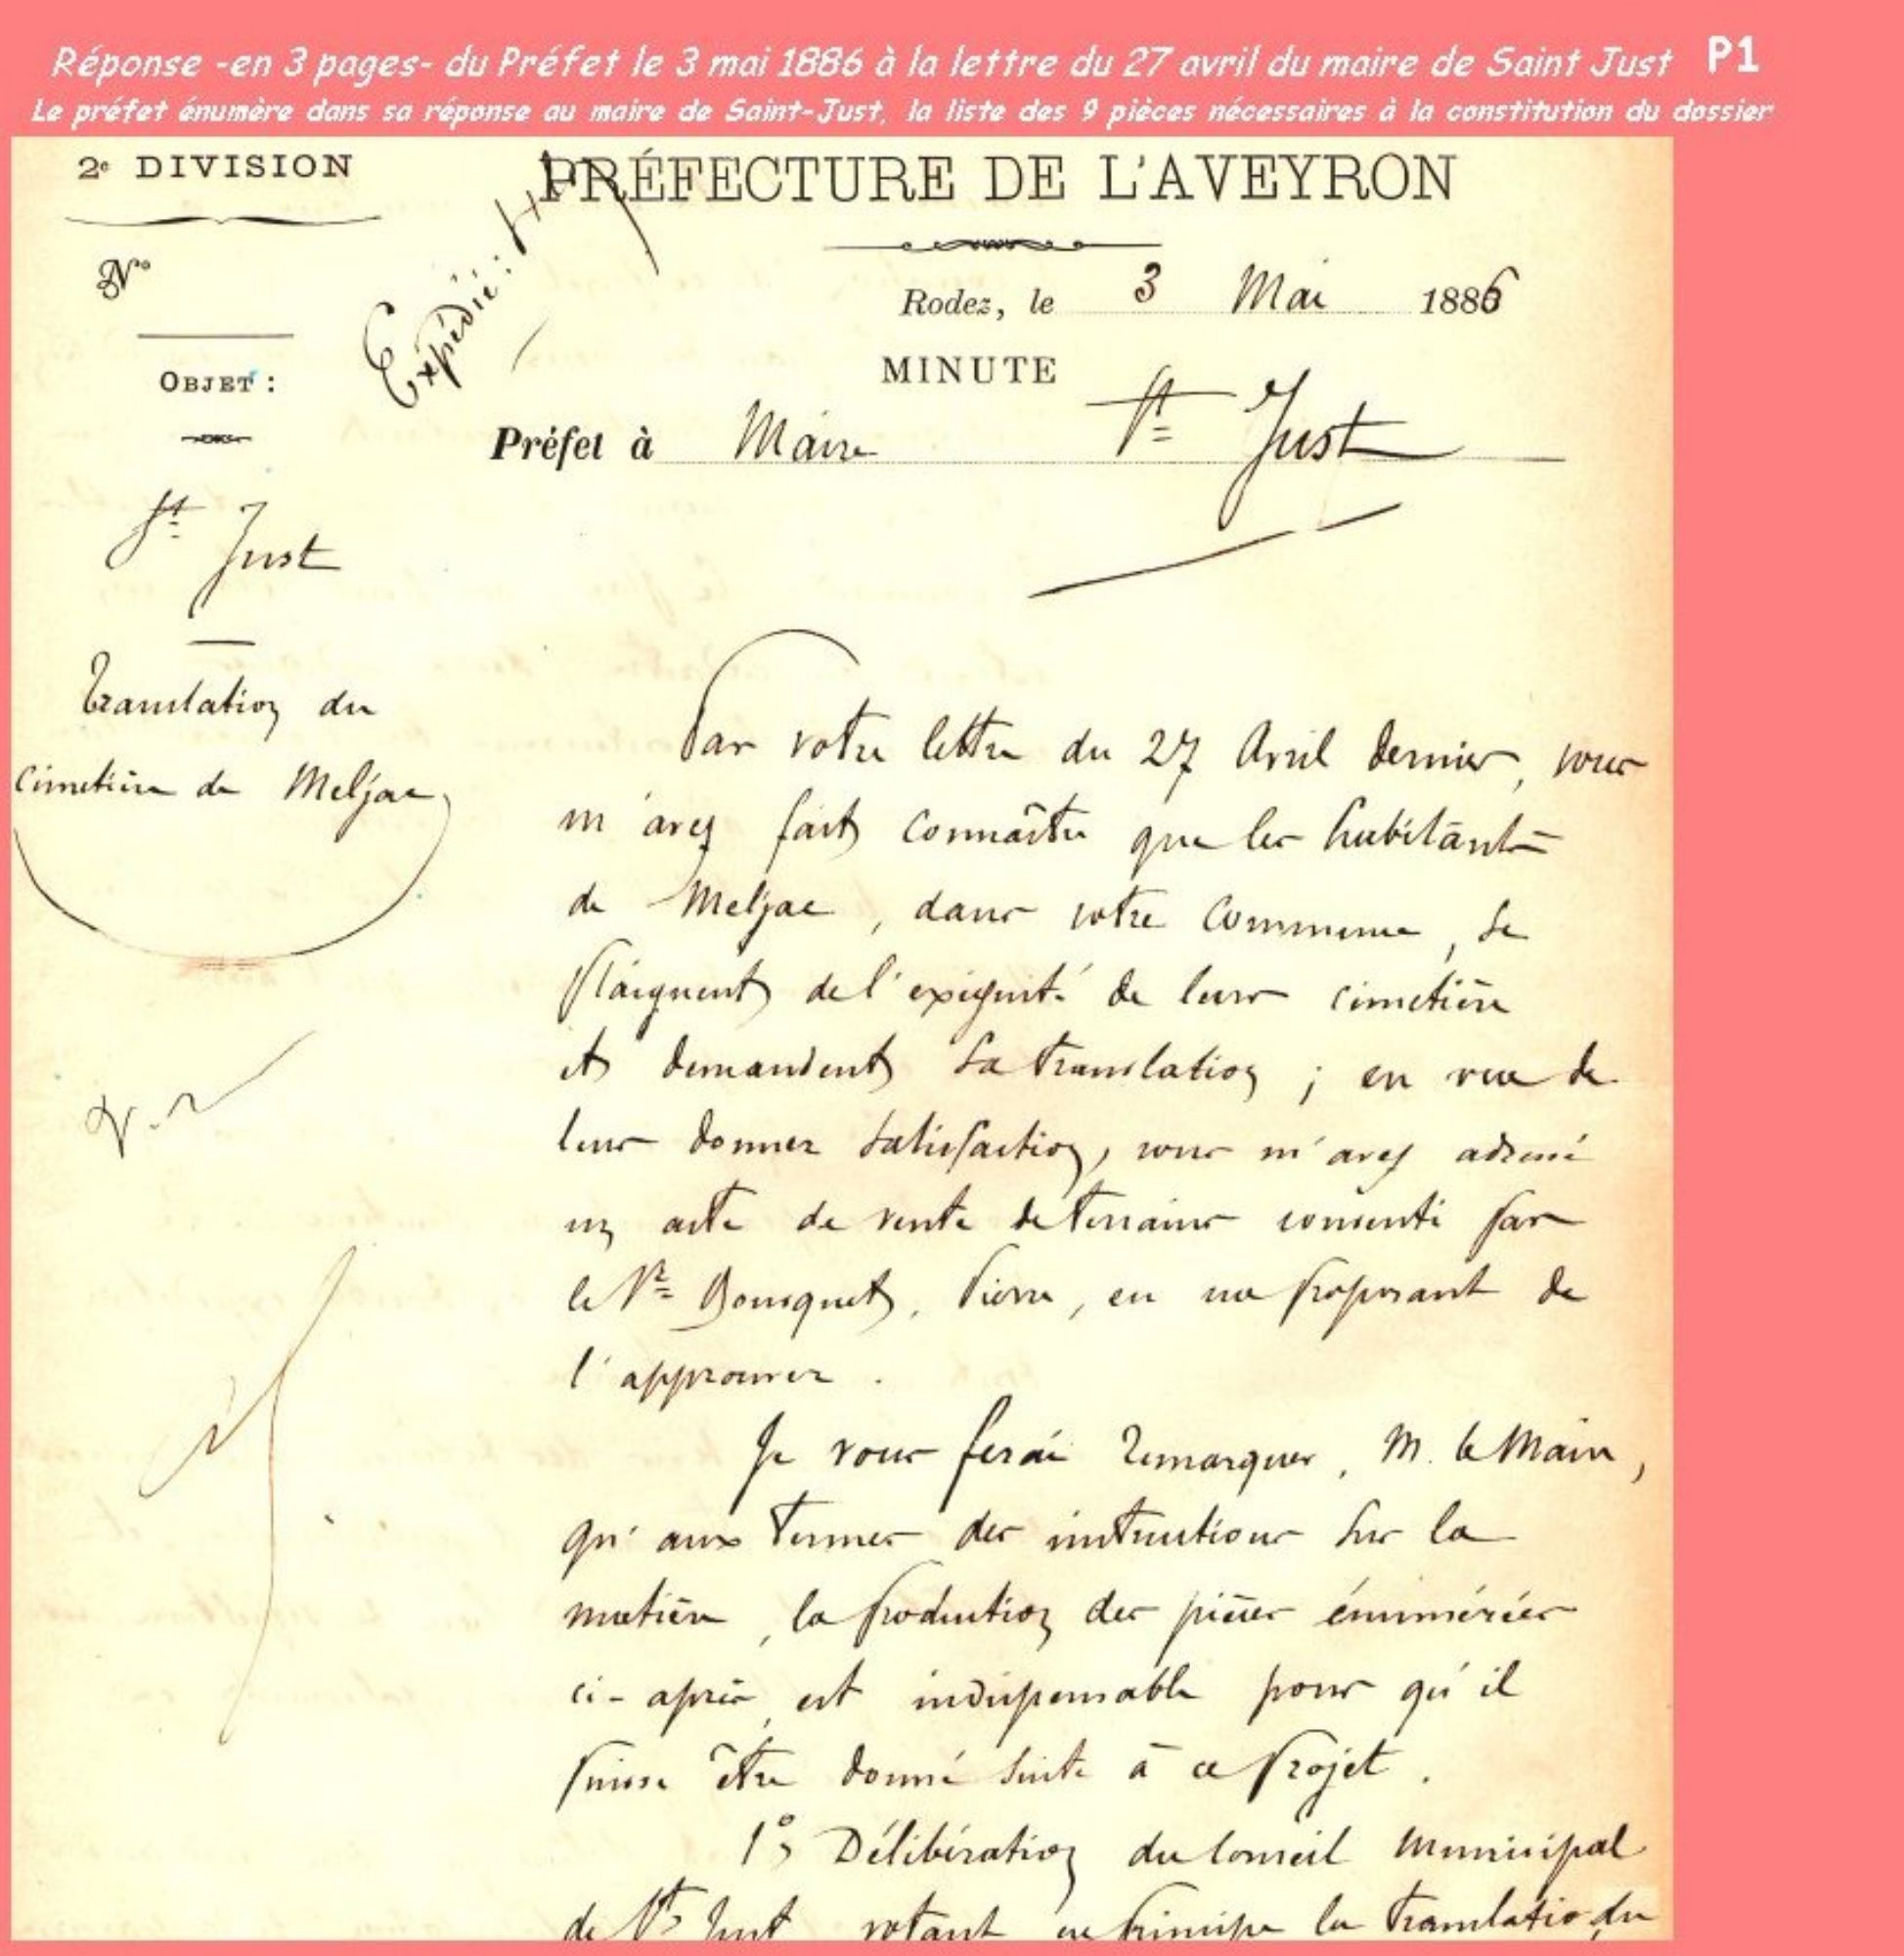 Réponse -en 3 pages- du Préfet le 3 mai 1886 à la lettre du 27 avril du maire de Saint Just P1
Le préfet énumère dans sa réponse au maire de Saint-Just, la liste des 9 pièces nécessaires à la constitution du dossier
2e DIVISION
PRÉFECTURE DE L'AVEYRON
No
Expédié :
Rodez, le 3 Mai 1886
OBJET :
MINUTE
Préfet à Maire St Just
St Just
Translation du
cimetière de Meljac
Par votre lettre du 27 Avril dernier, vous
m'avez fait connaître que les habitants
de Meljac, dans votre commune, se
plaignent de l'exiguité de leur cimetière
et demandent sa translation ; en vue de
leur donner satisfaction, vous m'avez adressé
un acte de vente de terrains consenti par
le Sr Bousquet, Pierre, en me proposant de
l'approuver.
Je vous ferai remarquer, M. le Maire,
qu'aux termes des instructions sur la
matière, la production des pièces énumérées
ci-après, est indispensable pour qu'il
puisse être donné suite à ce projet.
1° Délibération du Conseil Municipal
de St Just votant en principe la translatio du